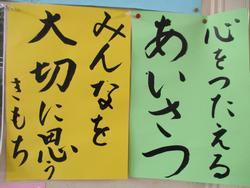 心をつたえる
あいさつ
みんなを
大切に思う
きもち